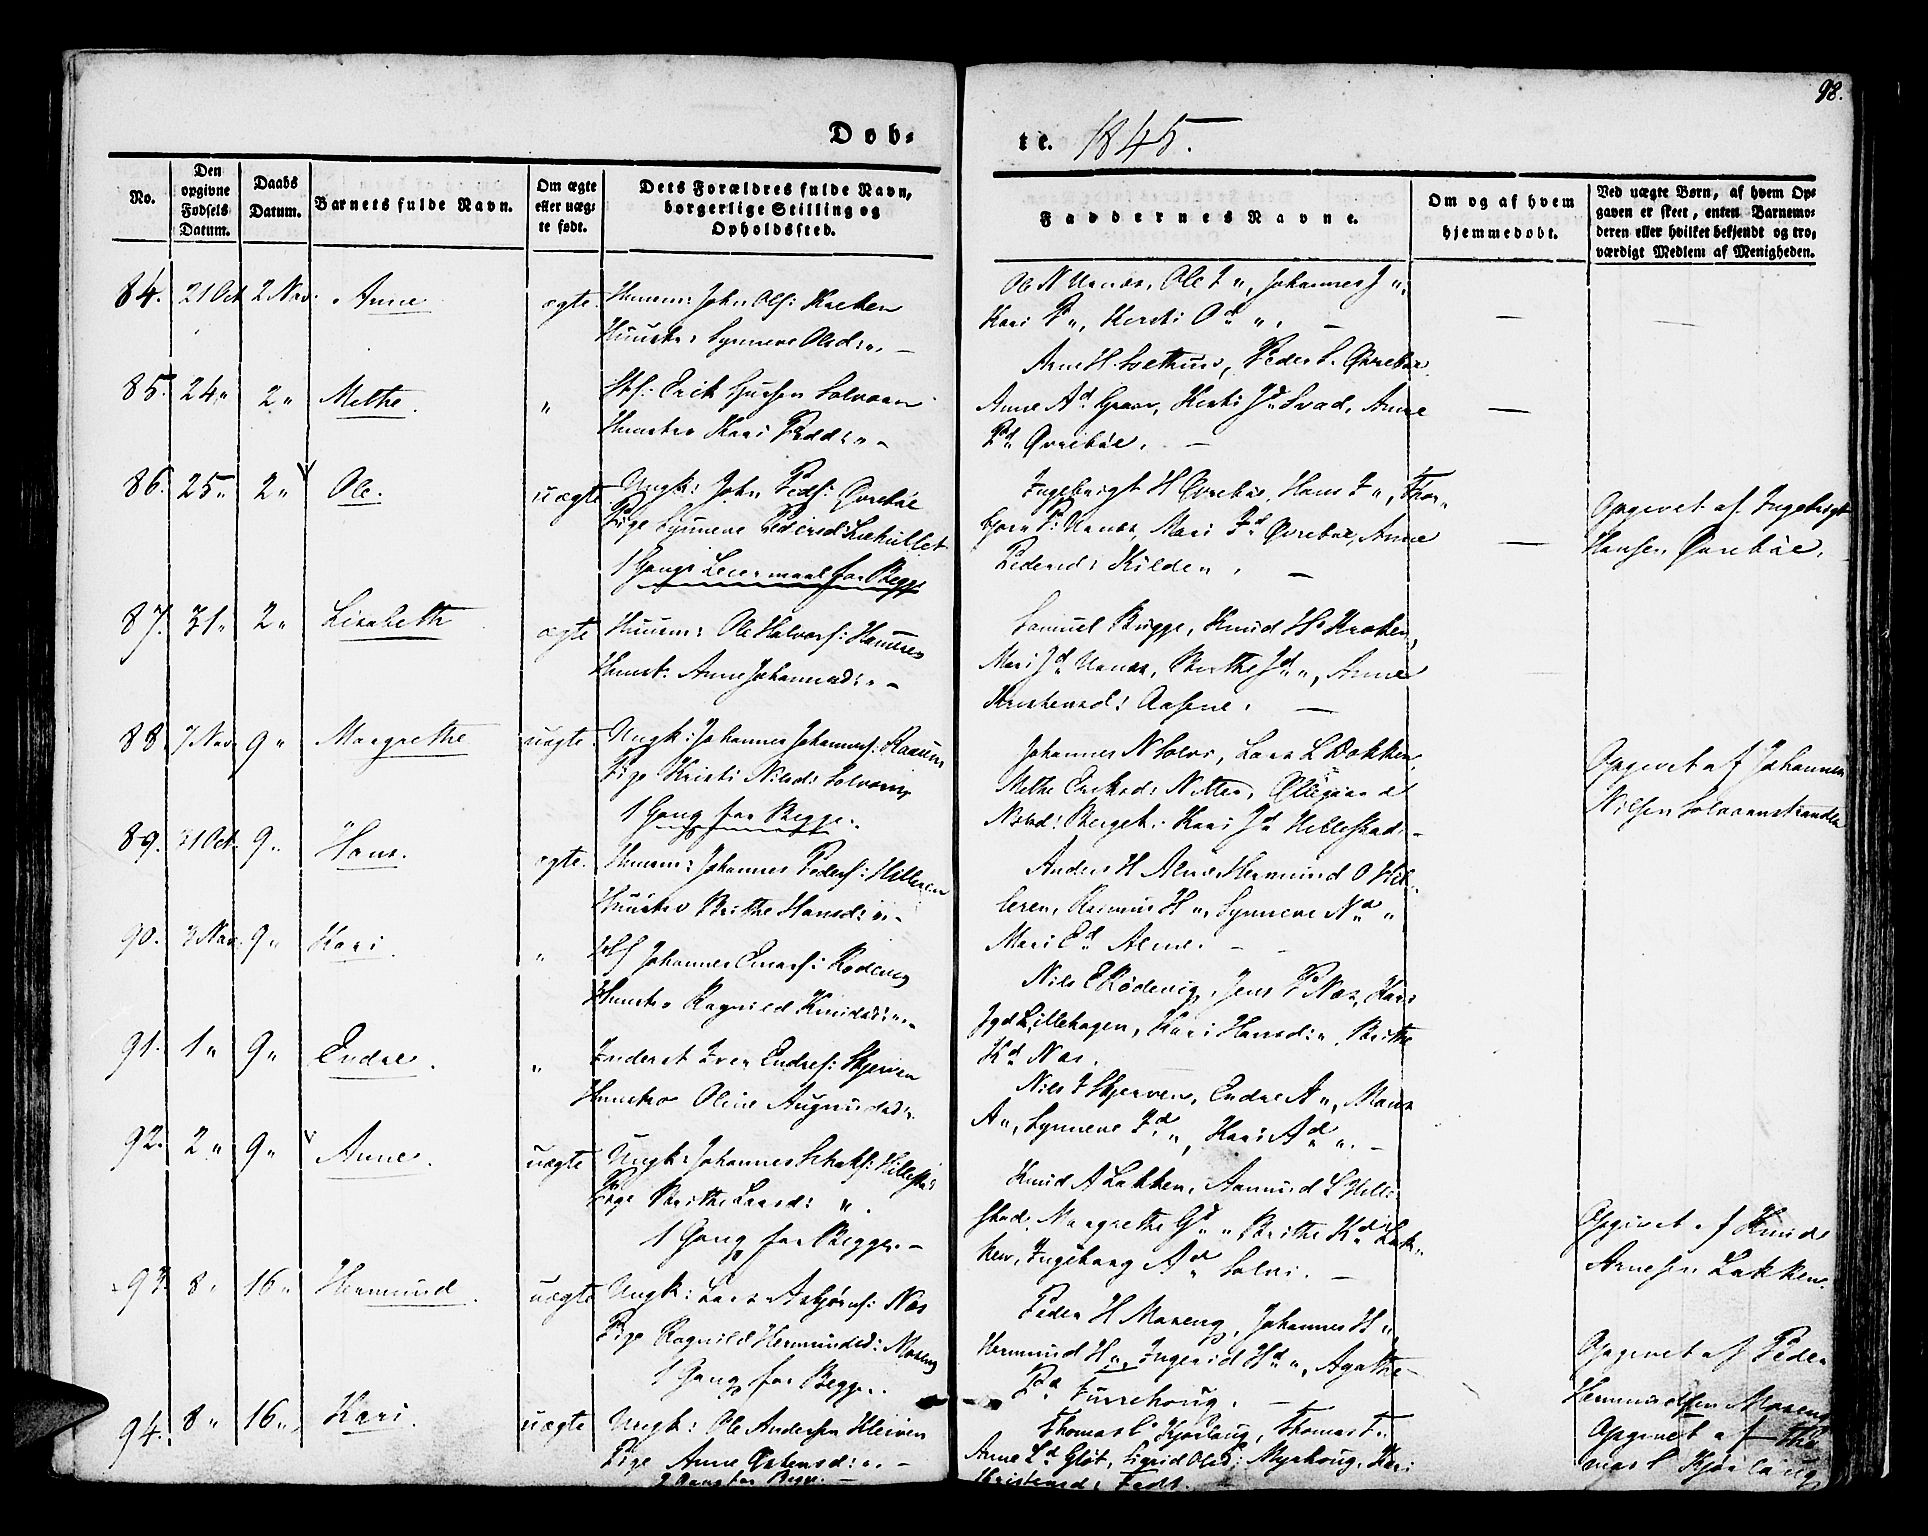 98.
Døb-
te. 1845.
No.
Den opgivne Fødsels Datum.
Daabs Datum.
Barnets fulde Navn.
Om ægte eller uæg- te født.
Dets Forældres fulde Navn, borgerlige Stilling og Opholdssted.
Faddernes Navne.
Om og af hvem hjemmedøbt.
Ved uægte Børn, af hvem Op- gaven er skeet, enten Barnemo- deren eller hvilket bekjendt og tro- værdigt Medlem af Menigheden.
84. 21 Oct 2 Nov: Anne ægte. Huusm: John Ols: Kroken
Huustro Synneve Olsd: " —
Ole N Urnæs, Ole I ", Johannes J ",
Kari P ", Kersti Od ". —
85. 24 " 2 " Methe. " Erik Solvorn
Huustro Kari Pedd: " —
Arne H. Sæthun, Peder L. Øvrebøe
Anne Ad Kersti Jd Svad, Anne
Pd Øvrebøe. —
86. 25 " 2 " Ole. uægte Ungk: John Peds: Øvrebøe
Pige Synneve Pedersd:
1 Gangs Leiermaal for Begge
Ingebrigt H Øvrebøe, Hans I ", Thor-
bjørn P: Urnæs, Mari Id Øvrebøe, Anne
Pedersd: Kilden. —
Opgivet af Ingebrigt
Hansen Øvrebøe.
87. 31 " 2 " Lisabeth ægte Huusm: Ole Halvors:
Huust: Anne Johannesd: " —
Samuel Bugge, Knud Hs Kroken,
Mari Jd Urnæs, Berthe Jd ", Anne
Kristensd: Aasene. —
88. 7 Nov 9 " Margrethe uægte Ungk: Johannes Johanness:
Pige Kristi Nilsd: Solvorn
1 Gang for Begge.
Johannes N Solvi, Lars L Dokken,
Methe Eriksd:
Nilsd: Berget. Kari Jd Hillestad. —
Opgivet af Johannes
Nilsen Solvornstranden
89. 31 Oct. 9 " Hans. ægte. Huusm: Johannes Peders: Hilleren
Huustro Brithe Hansd: " —
Anders H Alme, Hermund O Hil-
leren, Rasmus H ", Synneve Nd "
Mari Ed Alme. —
90. 3 Nov. 9 " Kari. " Johannes Enars: Rødevig
Huustro Ragnild Knudsd: " —
Nils E Rødevig, Jens P Næs, Kari
Jgd Lillehagen, Kari Hansd: ". Brithe
Kd Næs.
91. 1 " 9 " Endre. " Inderst Iver Endres: Skjerven
Huustro Oline Augmundsd: "
Nils I Skjerven, Endre A ", Mons
A ", Synneve Id ", Kari Ad ". —
92. 2 " 9 " Anne. uægte Ungk: Johannes Hillestad
Pige Brithe Larsd: ".
1 Gang for Begge. —
Knud A Lakken, Aamund L Hille-
stad, Margrethe Gd " Brithe Kd Lak-
ken, Ingeborg Ad Solvi. —
Opgivet af Knud
Arnesen Lakken.
93. 8 " 16 " Hermund uægte Ungk: Lars Asbjørns: Næs
Pige Ragnild Hermundsd: Moreng
1 Gang for Begge.
Peder H Moreng, Johannes H "
Hermund H ", Ingerid Hd ", Agathe
Pd Furrehoug. —
Opgivet af Peder
Hermundsen Moreng
94. 8 " 16 " Kari. uægte Ungk: Ole Andersen Kleiven
Pige Anne Ostensd: ". —
2 Gang for Begge. —
Thomas E Kjørlaug, Thomas T "
Anne Ld Gløt, Sigrid Olsd: Myrhoug, Kari
Kristensd: Fedt.
Opgivet af Tho-
mas E Kjørlaug